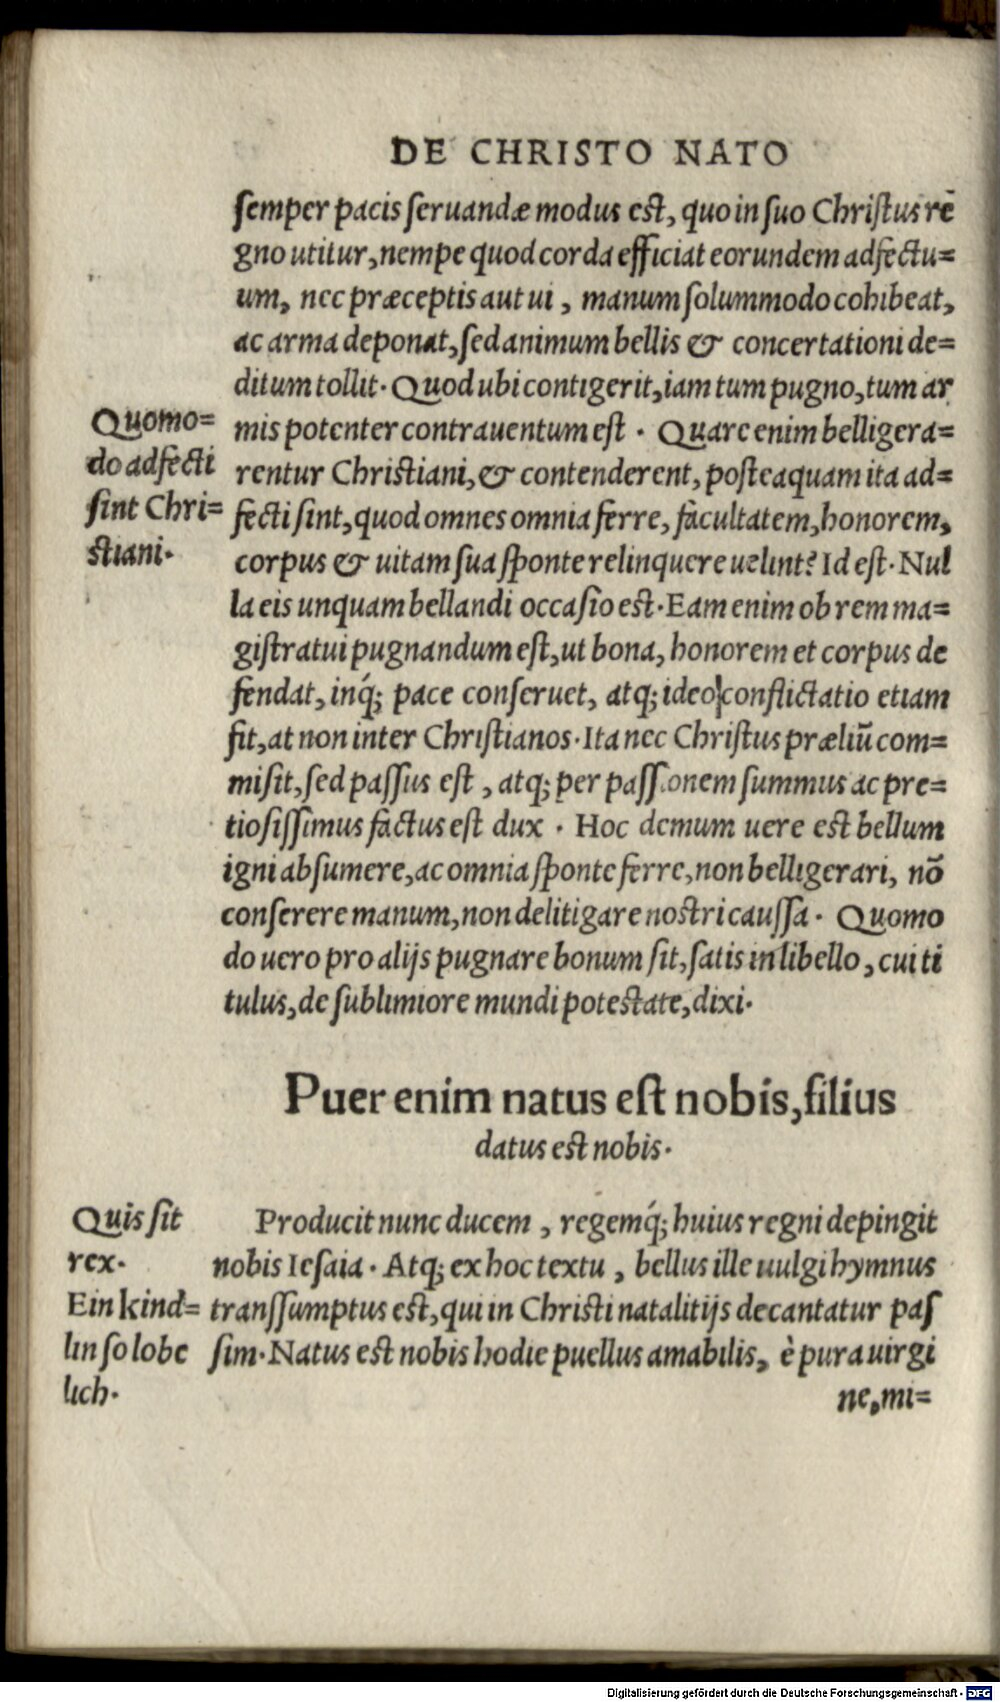 DE CHRISTO NATO
semper pacis seruandæ modus est, quo in suo Christus rē
gno utitur, nempe quod corda efficiat eorundem adfectu=
um, nec præceptis aut ui, manum solummodo cohibeat,
ac arma deponat, sed animum bellis & concertationi de=
ditum tollit. Quod ubi contigerit, iam tum pugno, tum ar
mis potenter contrauentum est. Quare enim belligera=
rentur Christiani, & contenderent, posteaquam ita ad=
fecti sint, quod omnes omnia ferre, facultatem, honorem,
corpus & uitam sua sponte relinquere uelint? Id est. Nul
la eis unquam bellandi occasio est. Eam enim ob rem ma=
gistratui pugnandum est, ut bona, honorem et corpus de
fendat, inq́; pace conseruet, atq; ideo conflictatio etiam
fit, at non inter Christianos. Ita nec Christus præliū com=
misit, sed passus est, atq; per passionem summus ac pre=
tiosissimus factus est dux. Hoc demum uere est bellum
igni absumere, ac omnia sponte ferre, non belligerari, nō
conserere manum, non delitigare nostri caussa. Quomo
do uero pro alijs pugnare bonum sit, satis in libello, cui ti
tulus, de sublimiore mundi potestate, dixi.
Quomo=
do adfecti
sint Chri=
stiani.
Puer enim natus est nobis, filius
datus est nobis.
Quis sit
rex.
Ein kind=
lin so lobe
lich.
Producit nunc ducem, regemq́; huius regni depingit
nobis Iesaia. Atq; ex hoc textu, bellus ille uulgi hymnus
transsumptus est, qui in Christi natalitijs decantatur pas
sim. Natus est nobis hodie puellus amabilis, è pura uirgi
ne, mi=
Digitalisierung gefördert durch die Deutsche Forschungsgemeinschaft - DFG